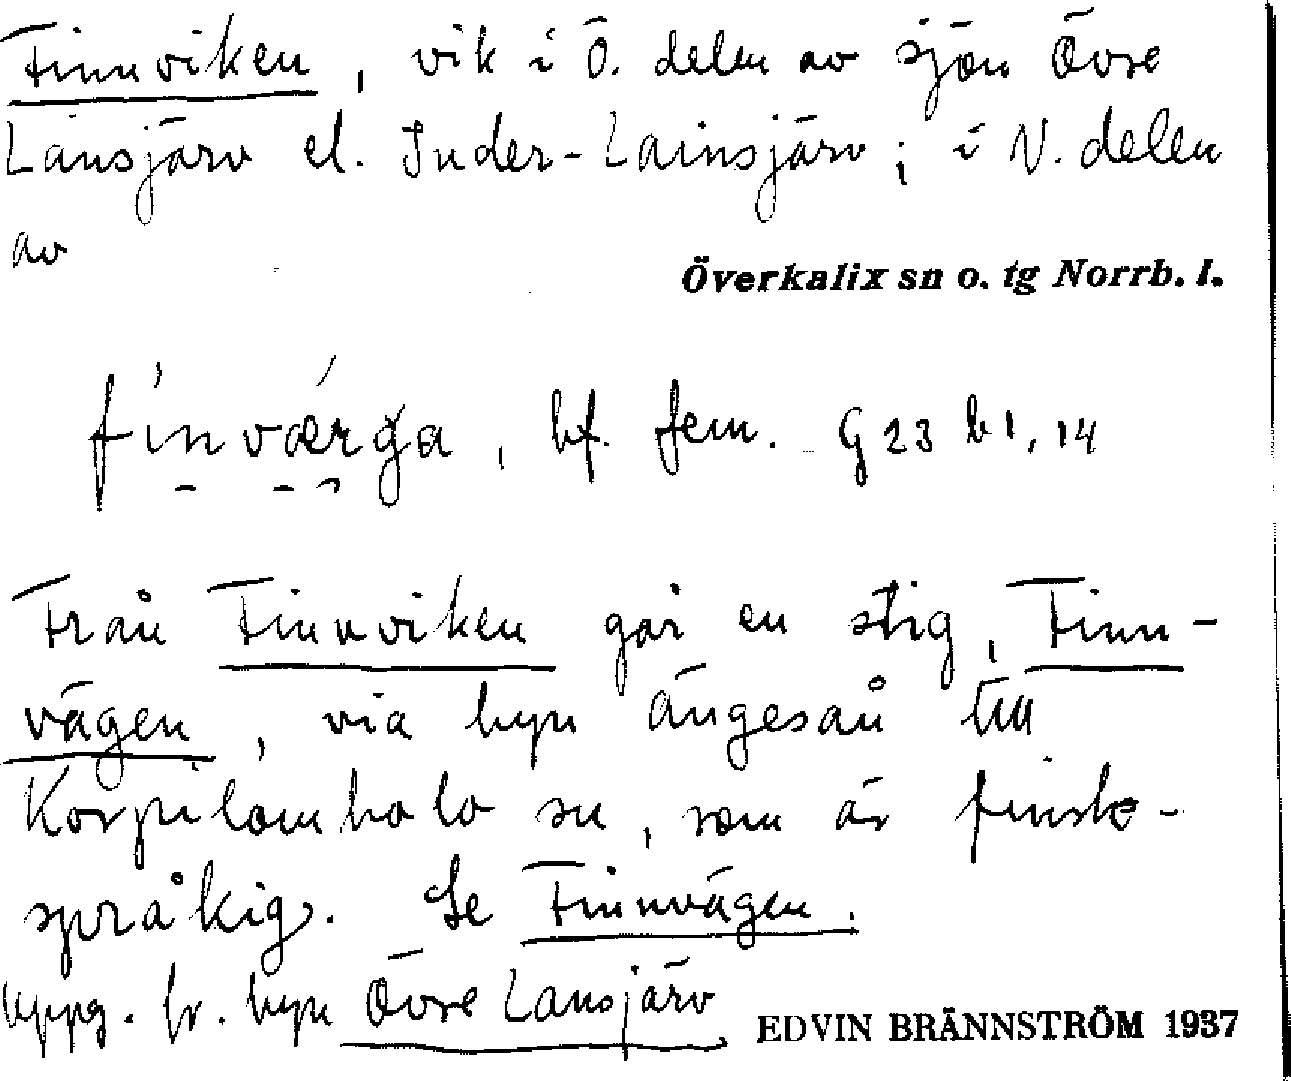 Finnviken, vik i Ö. delen av sjön Övre
Lansjärv el. Inder-Lainsjärv; i N. delen
av
Överkalix sn o. tg Norrb. l.
finværga, bf. fem. G 23 b 1, 14
Från Finnviken går en stig, Finn-
vägen, via byn Ängesån till
Korpilombolo sn, som är finsk-
språkig. Se Finnvägen.
Uppg. fr. byn Övre Lansjärv
EDVIN BRÄNNSTRÖM 1937